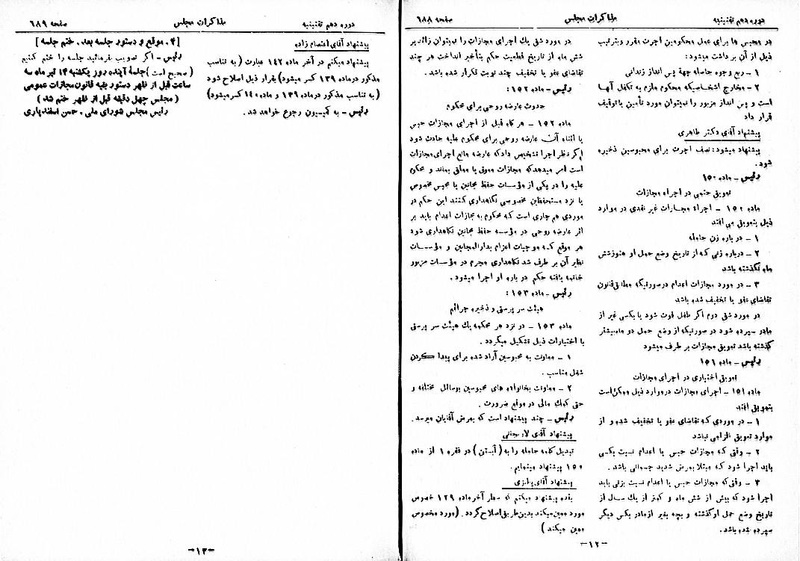 دوره دهم تقنینیه
مذاکرات مجلس
صفحه ۶۸۸
در محبس ها برای عمل محکومین اجرت مقرر و بترتیب
ذیل از آن برداشت میشود:
۱ - ربع وجوه حاصله جهة پس انداز زندانی
۲ - مخارج اشخاصیکه محکوم ملزم به تکفل آنها
است و پس انداز مزبور را نمیتوان مورد تأمین یا توقیف
قرار داد
پیشنهاد آقای دکتر طاهری
پیشنهاد میشود: نصف اجرت برای محبوسین ذخیره
شود.
رئیس - ماده ۱۵۰
تعویق حتمی در اجراء مجازات
ماده ۱۵۰ - اجراء مجازات غیر نقدی در موارد
ذیل بتعویق می افتد
۱ - در باره زن حامله
۲ - درباره زنی که از تاریخ وضع حمل او هنوز شش
ماه نگذشته باشد
۳ - در مورد مجازات اعدام در صورتیکه مطابق قانون
تقاضای عفو یا تخفیف شده باشد
در مورد شق دوم اگر طفل فوت شود یا بکسی غیر از
مادر سپرده شود در صورتیکه از وضع حمل دو ماه بیشتر
گذشته باشد تعویق مجازات بر طرف میشود
رئیس - ماده ۱۵۱
تعویق اختیاری در اجرای مجازات
ماده ۱۵۱ - اجرای مجازات در موارد ذیل ممکن است
بتعویق افتد
۱ - در موردی که تقاضای عفو یا تخفیف شده و از
موارد تعویق الزامی نباشد
۲ - وقتی که مجازات حبس یا اعدام نسبت بکسی
باید اجرا شود که مبتلا بمرض شدید جسمانی باشد.
۳ - وقتی که مجازات حبس یا اعدام نسبت بزنی باید
اجرا شود که بیش از شش ماه و کمتر از یک سال از
تاریخ وضع حمل او گذشته و بچه بغیر از مادر بکس دیگر
سپرده نشده باشد.
در مورد شق یک اجرای مجازات را نمیتوان زائد بر
شش ماه از تاریخ قطعیت حکم بتأخیر انداخت هر چند
تقاضای عفو یا تخفیف چند نوبت تکرار شده باشد.
رئیس - ماده ۱۵۲:
حدوث عارضه روحی برای محکوم
ماده ۱۵۲ - هر گاه قبل از اجرای مجازات حبس
یا اثناء آن عارضه روحی برای محکوم علیه حادث شود
اگر نظر اجرا تشخیص داد که عارضه مانع اجرای مجازات
است امر میدهد که مجازات معوق یا معلق بماند و محکوم
علیه را در یکی از مؤسسات حفظ مجانین یا محبس مخصوص
یا نزد مستحفظین مخصوصی نگاهداری کنند این حکم در
موردی هم جاری است که محکوم به مجازات اعدام باید بر
اثر عارضه روحی در مؤسسه حفظ مجانین نگاهداری شود
هر موقع که موجبات اعزام بدارالمجانین و مؤسسات
نظایر آن بر طرف شد نگاهداری مجرم در مؤسسات مزبور
خاتمه یافته حکم در باره او اجرا میشود.
رئیس - ماده ۱۵۳:
هیئت سر پرستی و ذخیره جرائم
ماده ۱۵۳ - در نزد هر محکمه یک هیئت سر پرستی
با اختیارات ذیل تشکیل میگردد.
۱ - معاونت به محبوسین آزاد شده برای پیدا کردن
شغل مناسب.
۲ - معاونت بخانواده های محبوسین بوسائل مختلفه و
حتی کمک مالی در موقع ضرورت.
رئیس - چند پیشنهاد است که بعرض آقایان میرسد.
پیشنهاد آقای لاریجانی
تبدیل کلمه حامله را به (آبستن) در فقره ۱ از ماده
۱۵۰ پیشنهاد مینمایم.
بنده پیشنهاد میکنم که سطر آخر ماده ۱۲۹ خصوص
مورد معین میکند بدین طریق اصلاح گردد. (مورد مخصوص
معین میکند)
-۱۲-
دوره دهم تقنینیه
مذاکرات مجلس
صفحه ۶۸۹
پیشنهاد آقای اعتصام زاده
پیشنهاد میکنم در آخر ماده ۱۴۷ عبارت (به تناسب
مذکور در ماده ۱۳۹ کسر میشود) بقرار ذیل اصلاح شود
(به تناسب مذکور در ماده ۱۳۹ و ماده ۱۴۰ کسر میشود)
رئیس - به کمیسیون رجوع خواهد شد.
[۴ - موقع و دستور جلسه بعد - ختم جلسه]
رئیس - اگر تصویب بفرمائید جلسه را ختم کنیم
(صحیح است) جلسه آینده روز یکشنبه ۱۴ تیر ماه سه
ساعت قبل از ظهر دستور بقیه قانون مجازات عمومی
(مجلس چهل دقیقه قبل از ظهر ختم شد)
رئیس مجلس شورای ملی - حسن اسفندیاری
-۱۳-